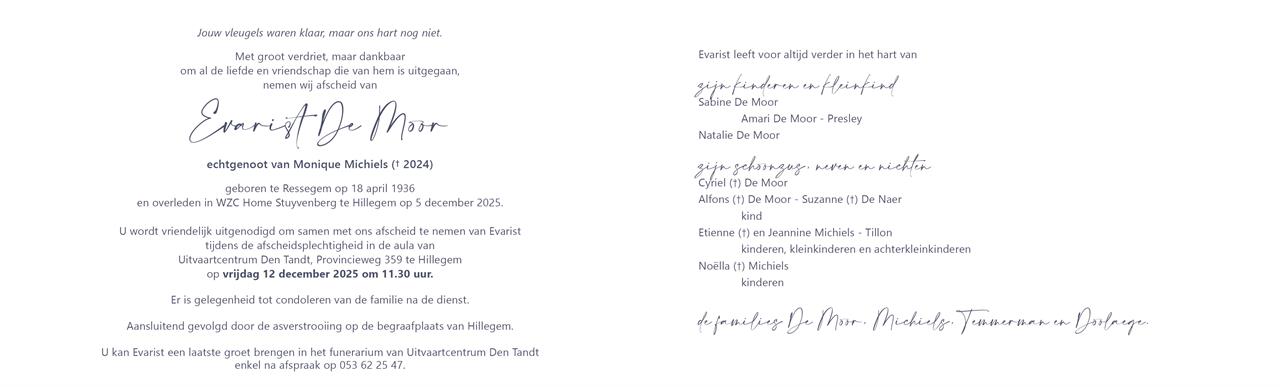 Jouw vleugels waren klaar, maar ons hart nog niet.
Met groot verdriet, maar dankbaar
om al de liefde en vriendschap die van hem is uitgegaan,
nemen wij afscheid van
Evarist De Moor
echtgenoot van Monique Michiels († 2024)
geboren te Ressegem op 18 april 1936
en overleden in WZC Home Stuyvenberg te Hillegem op 5 december 2025.
U wordt vriendelijk uitgenodigd om samen met ons afscheid te nemen van Evarist
tijdens de afscheidsplechtigheid in de aula van
Uitvaartcentrum Den Tandt, Provincieweg 359 te Hillegem
op vrijdag 12 december 2025 om 11.30 uur.
Er is gelegenheid tot condoleren van de familie na de dienst.
Aansluitend gevolgd door de asverstrooiing op de begraafplaats van Hillegem.
U kan Evarist een laatste groet brengen in het funerarium van Uitvaartcentrum Den Tandt
enkel na afspraak op 053 62 25 47.
Evarist leeft voor altijd verder in het hart van
zijn kinderen en kleinkind
Sabine De Moor
Amari De Moor - Presley
Natalie De Moor
zijn schoonzus, neven en nichten
Cyriel (†) De Moor
Alfons (†) De Moor - Suzanne (†) De Naer
kind
Etienne (†) en Jeannine Michiels - Tillon
kinderen, kleinkinderen en achterkleinkinderen
Noëlla (†) Michiels
kinderen
de families De Moor, Michiels, Temmerman en Doolaege.